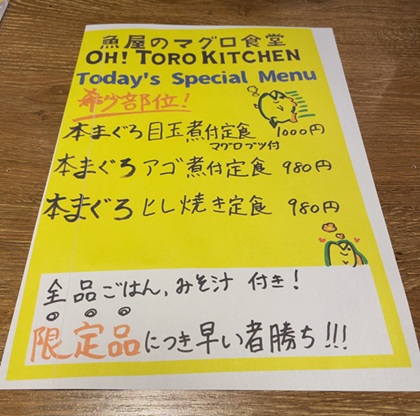 魚屋のマグロ食堂
OH! TORO KITCHEN
Today's Special Menu
希少部位!
本まぐろ目玉煮付定食 1000円
マグロブツ付
本まぐろアゴ煮付定食 980円
本まぐろヒレ焼き定食 980円
全品ごはん、みそ汁 付き!
限定品につき早い者勝ち!!!